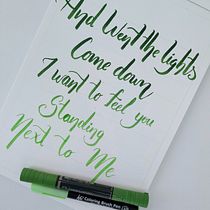 And Went the lights
Come down
I want to feel you
Standing
Next to Me
Coloring Brush Pen